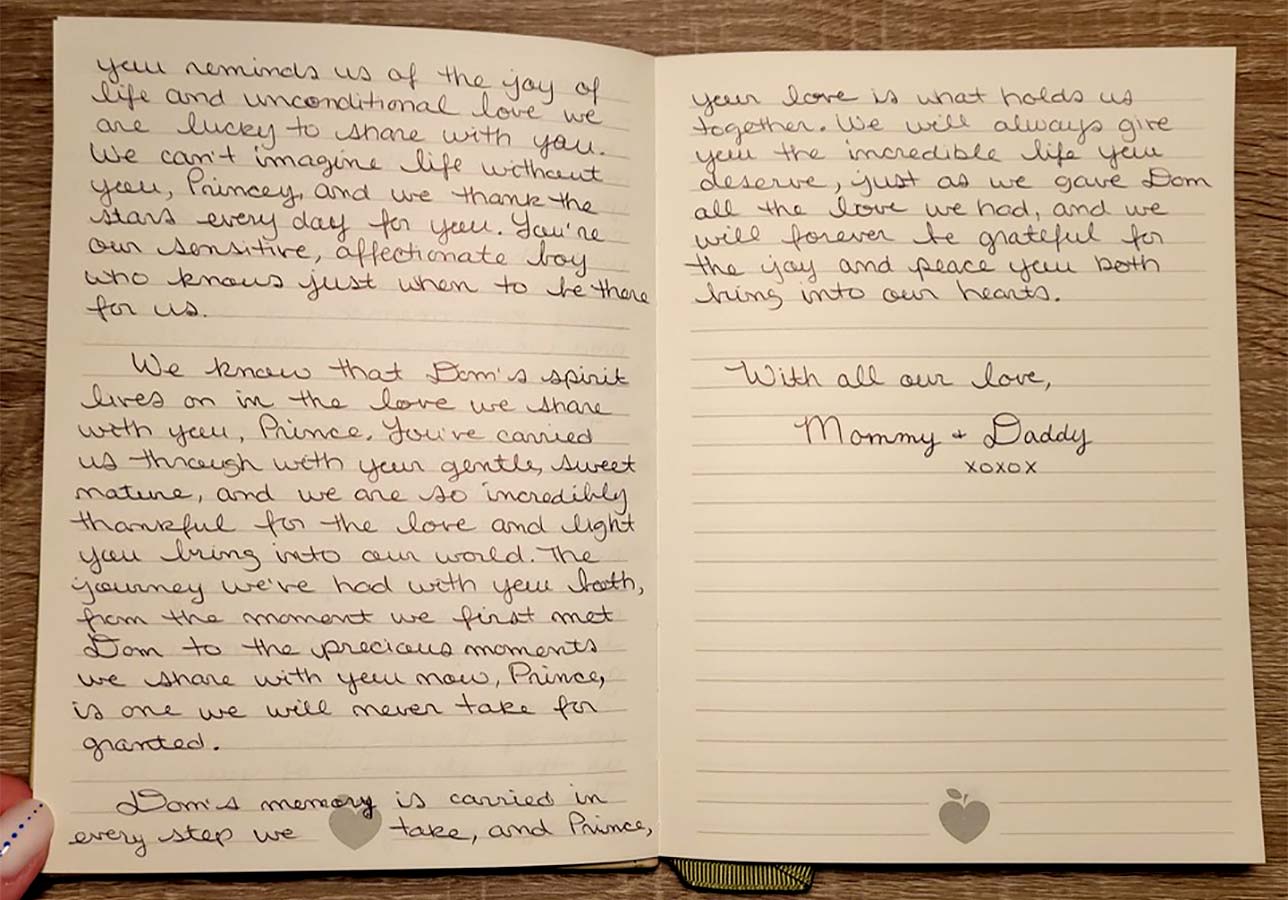 you reminds us of the joy of
life and unconditional love we
are lucky to share with you.
We can't imagine life without
you, Princey, and we thank the
stars every day for you. You're
our sensitive, affectionate boy
who knows just when to be there
for us.
We know that Dom's spirit
lives on in the love we share
with you, Prince. You've carried
us through with your gentle, sweet
nature, and we are so incredibly
thankful for the love and light
you bring into our world. The
journey we've had with you both,
from the moment we first met
Dom to the precious moments
we share with you now, Prince,
is one we will never take for
granted.
Dom's memory is carried in
every step we take, and Prince,
your love is what holds us
together. We will always give
you the incredible life you
deserve, just as we gave Dom
all the love we had, and we
will forever be grateful for
the joy and peace you both
bring into our hearts.
With all our love,
Mommy + Daddy
xoxox